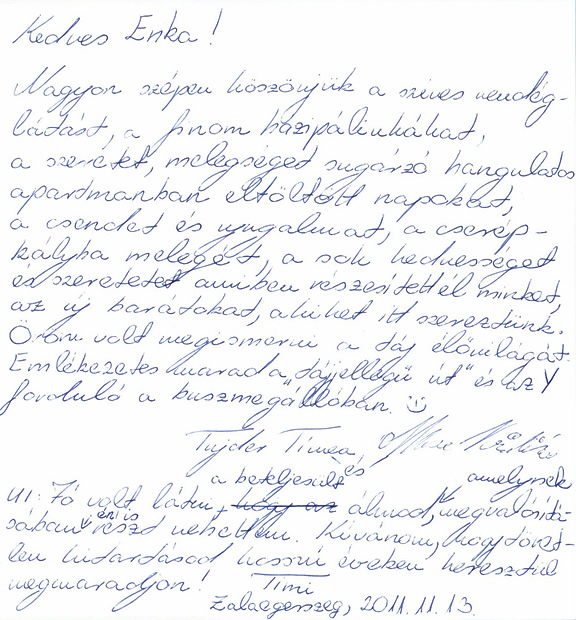 Kedves Enka!
Nagyon szépen köszönjük a szíves vendég-
látást, a finom házipálinkákat,
a szeretet, melegséget sugárzó hangulatos
apartmanban eltöltött napokat,
a csendet és nyugalmat, a cserép-
kályha melegét, a sok kedvességet
és szeretetet amiben részesítettél minket,
az új barátokat, akiket itt szereztünk.
Öröm volt megismerni a táj élővilágát.
Emlékezetes marad a "tájjellegű út" és az Y
forduló a buszmegállóban. ☺
Tujder Tímea, és
a beteljesült amelynek
Ui: Jó volt látni, hogy az álmod, megvalósítá-
sában én is részt vehettem. Kívánom, hogy töret-
len kitartásod hosszú éveken keresztül
megmaradjon! Timi
Zalaegerszeg, 2011.11.13.